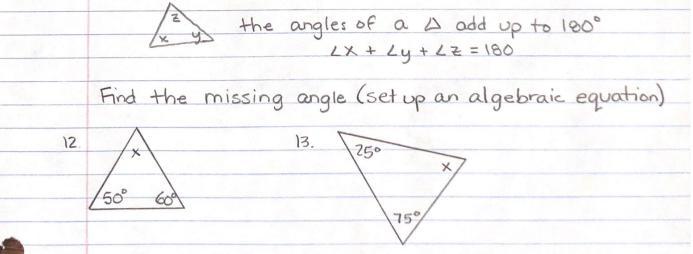 z
x y
the angles of a △ add up to 180°
∠x + ∠y + ∠z = 180
Find the missing angle (set up an algebraic equation)
12.
x
50° 60°
13.
25°
x
75°